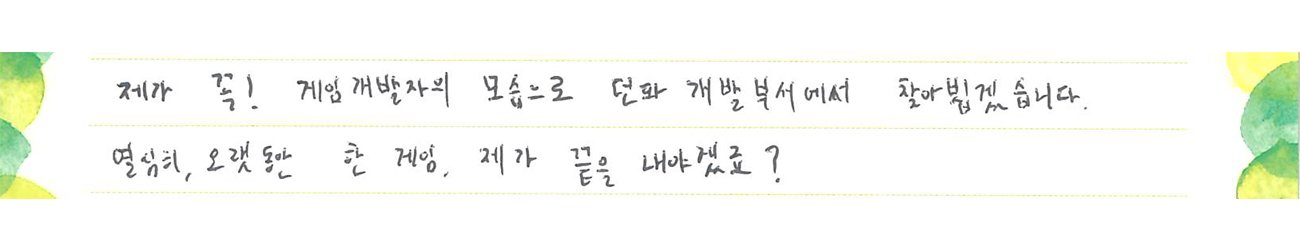 제가 꼭! 게임개발자의 모습으로 던파 개발부서에서 찾아뵙겠습니다.
열심히, 오랫동안 한 게임, 제가 끝을 내야겠죠?